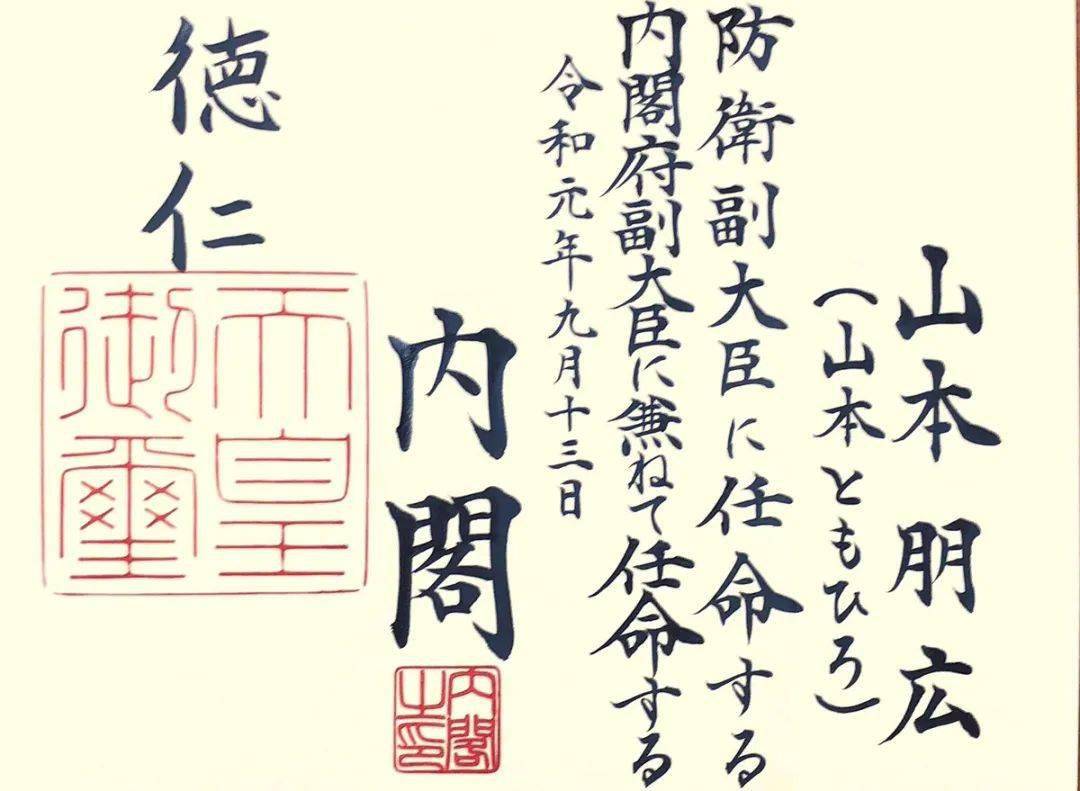 山本朋広
（山本ともひろ）
防衛副大臣に任命する
内閣府副大臣に兼ねて任命する
令和元年九月十三日
内閣
内閣之印
徳仁
天皇御璽